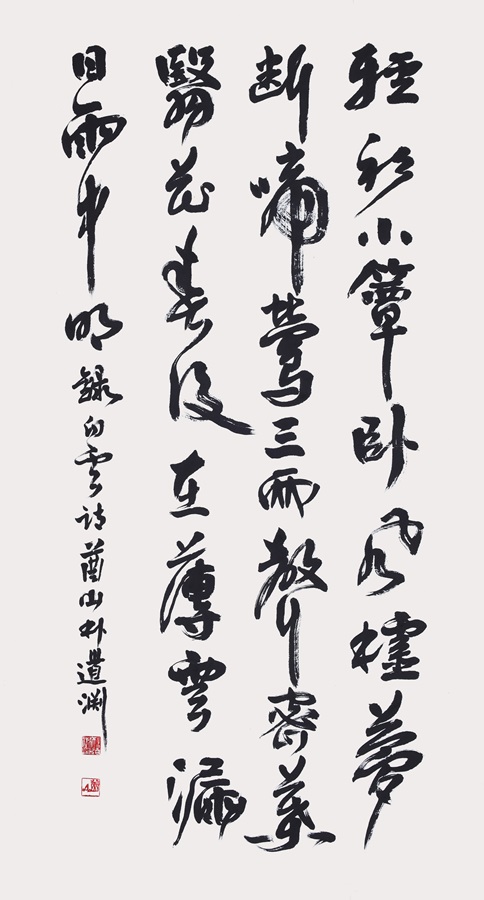 輕衫小簟臥風欞夢
斷啼鶯三兩聲密葉
翳花春後在薄雲漏
日雨中明 錄白雲詩 山朴淵